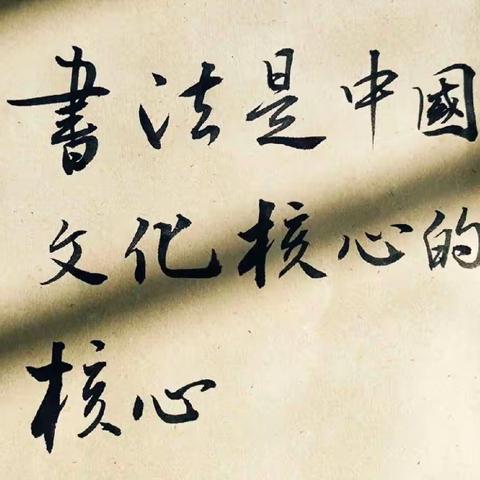 書法是中國
文化核心的
核心